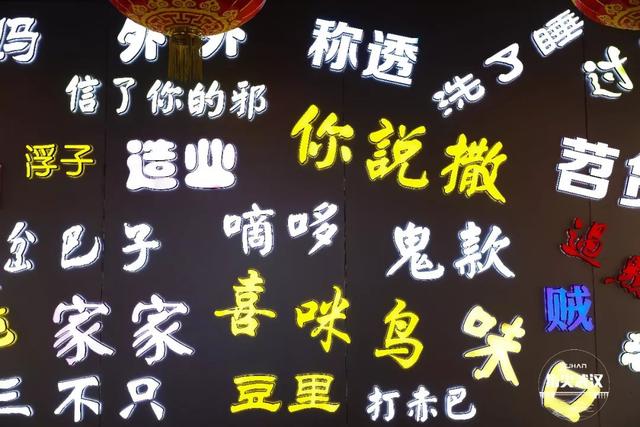 外外
称透
洗了睡
过
信了你的邪
浮子
造业
你說撒
苕
岔巴子
嘀哆
鬼款
过
贼
家家
喜咪
鸟味
三不只
豆里
打赤巴